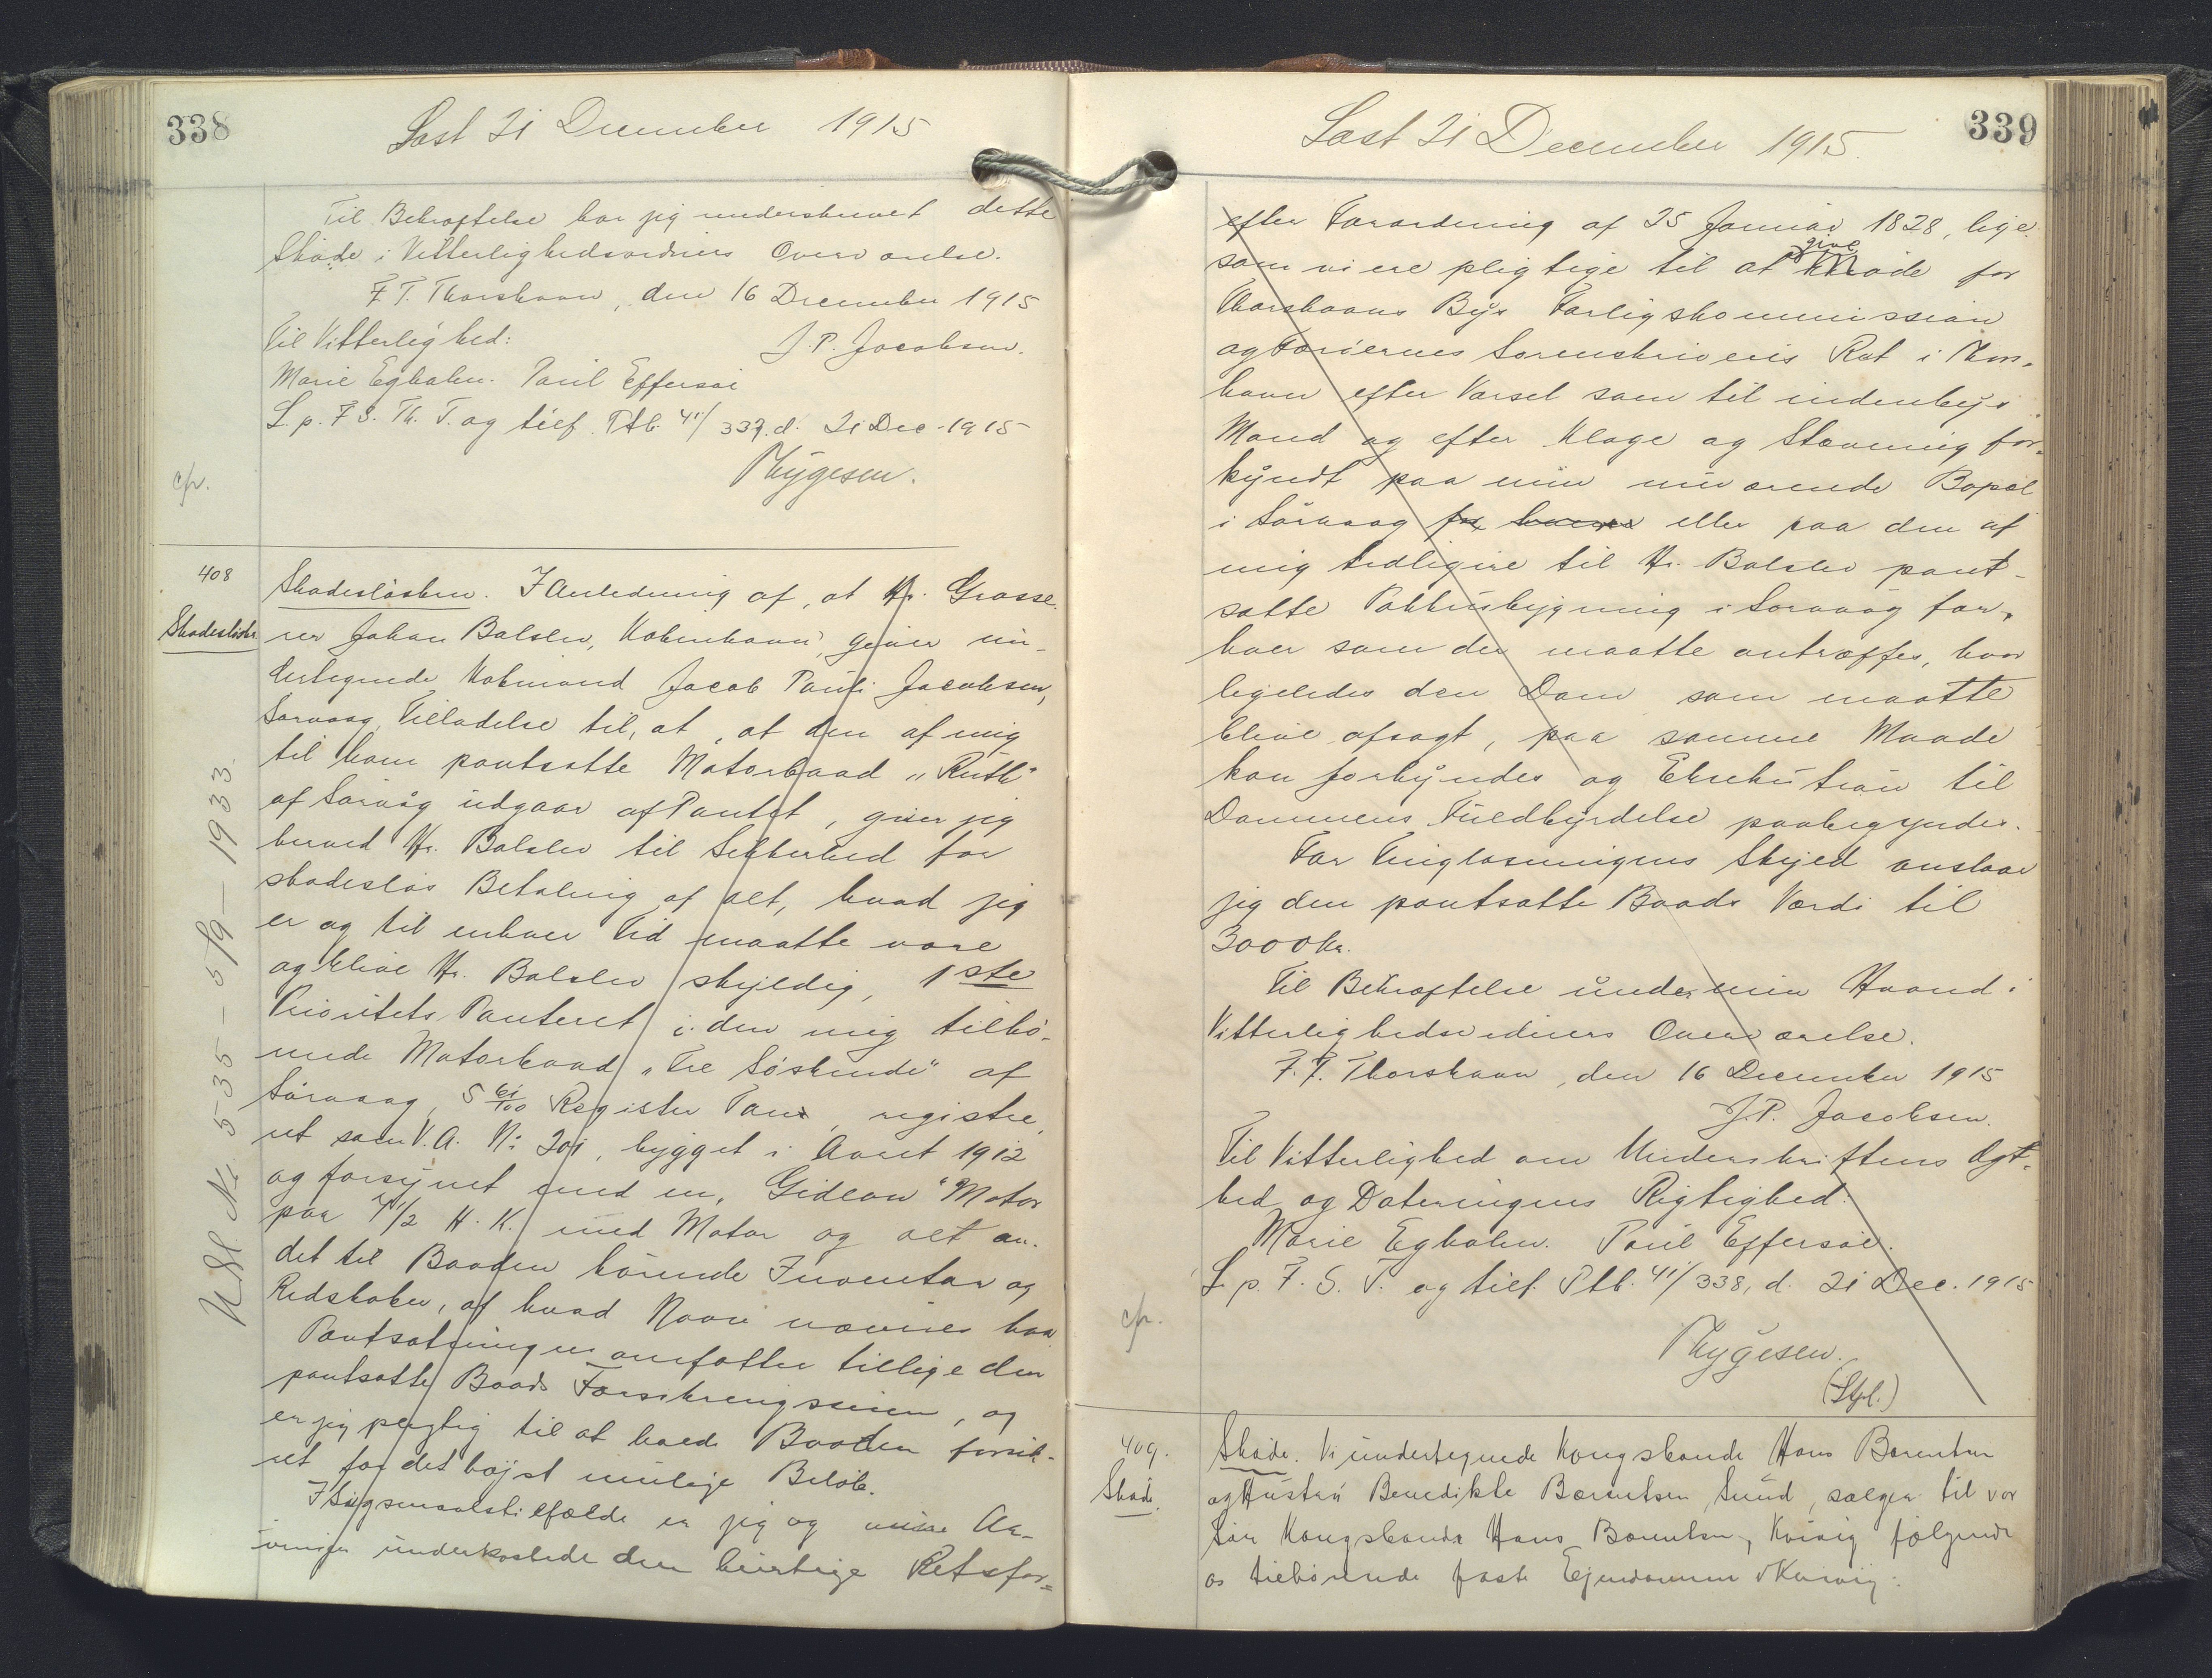 338
Læst 21 December 1915
Til Bekræftelse har jeg underskrevet dette
Skøde i Vitterlighedsvidners Overværelse.
F. T. Thorshavn, den 16 December 1915
Til Vitterlighed:
J. P. Jacobsen.
Marie Egholm. Poul Effersøe
L. p. F. S. Th. T. og tilf. Ptb. 41/337. d. 21 Dec. 1915
Thygesen.
cfr.
408
Skadesløsbr.
Skadesløsbrev. I Anledning af, at Hr. Grosse-
rer Johan Balslev, København, giver un-
dertegnede Købmand Jacob Pauli Jacobsen,
Sørvaag, Tilladelse til, at, at den af mig
til ham pantsatte Motorbaad "Ruth"
af Sørvåg udgaar af Pantet, giver jeg
herved Hr. Balslev til Sikkerhed for
skadesløs Betaling af alt, hvad jeg
er og til enhver Tid maatte være
og blive Hr. Balslev skyldig, 1ste
Prioritets Panteret i den mig tilhø-
rende Motorbaad "Tre Söskende" af
Sørvaag, 5 61/100 Register Tons, registre-
ret som V.A. No 201, bygget i Aaret 1912
og forsynet med en "Gideon" Motor
paa 4 1/2 H. K. med Motor og alt an-
det til Baaden hørende Inventar og
Redskaber, af hvad Navn nævnes kan.
Pantsætningen omfatter tillige den
pantsatte Baads Forsikringssum, og
er jeg pligtig til at holde Baaden forsik-
ret for det højst mulige Beløb.
I Søgsmaalstilfælde er jeg og mine Ar-
vinger underkastede den hurtige Retsfor-
Udsl No 5-35 - 5/9 - 1933.
339
Læst 21 December 1915.
efter Forordning af 25 Januar 1828, lige-
som vi ere pligtige til at give Møde for
Thorshavns Bys Forligskommission
og Færøernes Sorenskriveris Ret i Thors-
havn efter Varsel som til indenbys
Mand og efter Klage og Stævning for-
kyndt paa min nuværende Bopæl
i Sørvaag for hvem eller paa den af
mig tidligere til Hr. Balslev pant-
satte Pakhusbygning i Sørvaag for
hver som der maatte antræffes, hvor
ligeledes den Dom som maatte
blive afsagt, paa samme Maade
kan forkyndes og Eksekution til
Dommens Fuldbyrdelse paabegyndes.
For Tinglæsningens Skyld anslaar
jeg den pantsatte Baads Værdi til
3000 Kr.
Til Bekræftelse under min Haand i
Vitterlighedsvidners Overværelse.
F. T. Thorshavn, den 16 December 1915
J. P. Jacobsen.
Til Vitterlighed om Underskriftens Ægt-
hed og Dateringens Rigtighed:
Marie Egholm. Poul Effersøe.
L. p. F. S. T. og tilf. Ptb. 41/338, d. 21 Dec. 1915
cfr.
Thygesen.
(Stpl.)
409.
Skøde.
Skøde. Vi undertegnede Kongsbonde Hans Bærentsen
og Hustru Benedikte Bærentsen, Sund, sælger til vor
Søn Kongsbonde Hans Bærentsen, Kvivig følgende
os tilhørende faste Ejendomme i Kvivig: